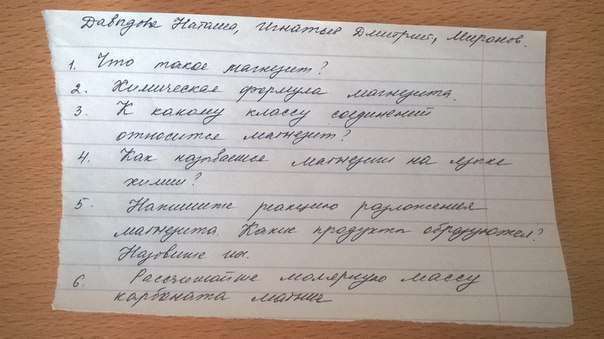 Давыдова Наташа, Игнатьев Дмитрий, Миронов.
1. Что такое магнезит?
2. Химическая формула магнезита.
3. К какому классу соединений
относится магнезит?
4. Как называется магнезит на языке
химии?
5. Напишите реакцию разложения
магнезита. Какие продукты образуются?
Назовите их.
6. Рассчитайте молярную массу
карбоната магния